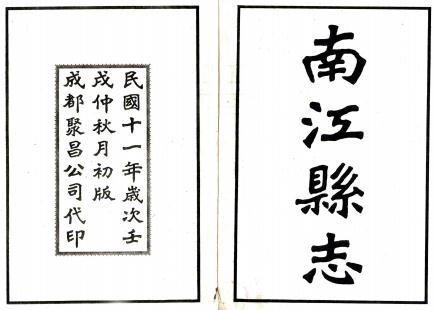 南江縣志
民國十一年歲次壬
戌仲秋月初版
成都聚昌公司代印